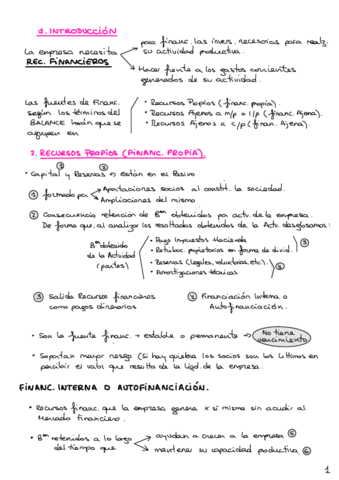 1. INTRODUCCIÓN
La empresa necesita REC. FINANCIEROS
para financ. las invers. necesarias para realiz. su actividad productiva.
Hacer frente a los gastos corrientes generados de su actividad.
Las fuentes de Financ. según los términos del BALANCE harán que se agrupen en
• Recursos Propios (financ. propia).
• Recursos Ajenos a m/p o l/p (financ. Ajena).
• Recursos Ajenos a c/p (finan. Ajena).
2. RECURSOS PROPIOS (FINANC. PROPIA).
① ②
• Capital y Reservas → están en el Pasivo
① formado por
Aportaciones socios al constit. la sociedad.
Ampliaciones del mismo
② Consecuencia retención de Bºs obtenidos por activ. de la empresa.
De forma que, al analizar los resultados obtenidos de la Activ. desglosamos:
Bºs obtenido de la Actividad (partes)
• Pago Impuestos Hacienda
• Retribuc. propietarios en forma de divid.
③
• Reservas (legales, voluntarias, etc).
• Amortizaciones técnicas
③ Salida Recursos financieros como pagos dinerarios
Financiación Interna o Autofinanciación.
• Son la fuente financ. + estable o permanente →
No tiene vencimiento
• Soportan mayor riesgo (si hay quiebra los socios son los últimos en percibir el valor que resulta de la liqd. de la empresa.
FINANC. INTERNA O AUTOFINANCIACIÓN.
• Recursos financ. que la empresa genera x si misma sin acudir al Mercado Financiero.
• Bºs retenidos a lo largo del tiempo que
ayudan a crecer a la empresa
mantener su capacidad productiva
1